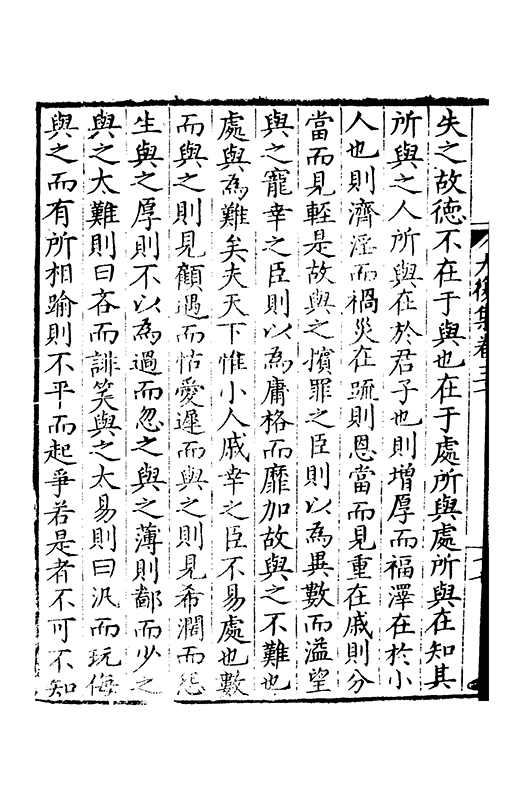 失之故德不在于與也在于處所與處所與在知其
所與之人所與在於君子也則增厚而福澤在於小
人也則濟淫而禍災在疏則恩當而見重在戚則分
當而見輕是故與之擯罪之臣則以為異數而溢望
與之寵幸之臣則以為庸格而靡加故與之不難也
處與為難矣夫天下惟小人戚幸之臣不易處也數
而與之則見顧遇而怙愛遲而與之則見希濶而怨
生與之厚則不以為過而忽之與之薄則鄙而少之
與之太難則曰吝而誹笑與之太易則曰汎而玩侮
與之而有所相踰則不平而起爭若是者不可不知